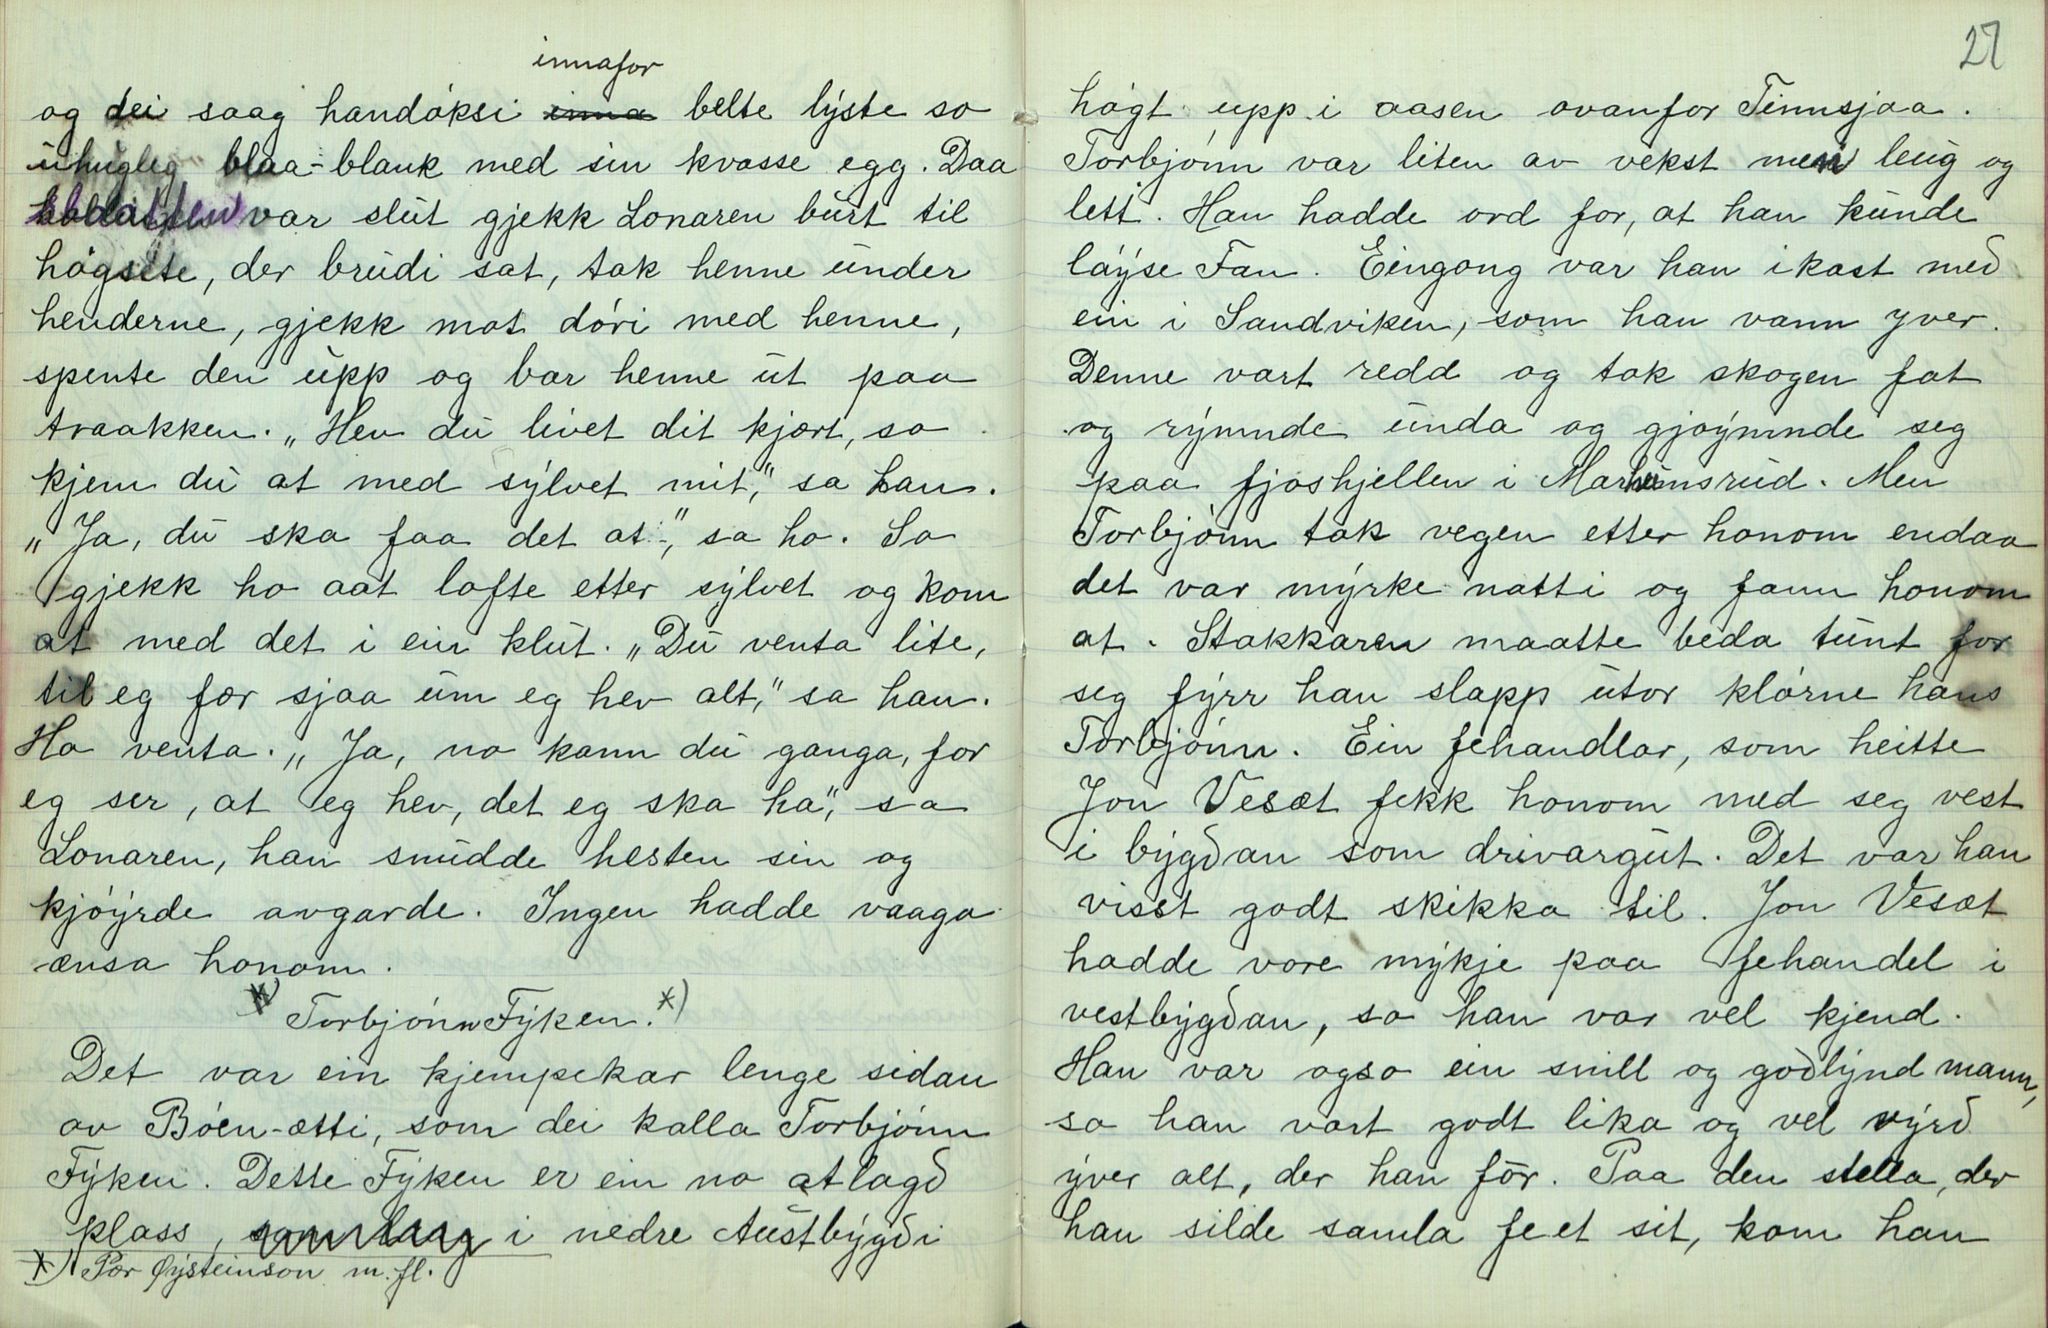 innafor
og dei saag handøksi inna belte lyste so
uhugleg blaa-blank med sin kvasse egg. Daa
var slut gjekk Lonaren burt til
høgsete, der brudi sat, tok henne under
henderne, gjekk mot døri med henne,
spente den upp og bar henne ut paa
traakken. „Hev du livet dit kjært, so
kjem du at med sylvet mit," sa han.
„Ja, du ska faa det at", sa ho. So
gjekk ho aat lofte etter sylvet og kom
at med det i ein klut. „Du venta lite,
til eg fær sjaa um eg hev alt," sa han.
Ho venta. „Ja, no kann du ganga, for
eg ser, at eg hev, det eg ska ha", sa
Lonaren, han snudde hesten sin og
kjøyrde avgarde. Ingen hadde vaaga
ænsa honom.
*) Torbjønn Fyken. *)
Det var ein kjempekar lenge sidan
av Bøen-ætti, som dei kalla Torbjønn
Fyken. Dette Fyken er ein no atlagð
plass, som laag i nedre Austbygði
*) Pær Øysteinson m. fl.
27
høgt upp i aasen ovanfor Tinnsjaa.
Torbjønn var liten av vekst men leug og
lett. Han hadde ord for, at han kunde
løyse Fan. Eingong var han i kast með
ein i Sandviken, som han vann yver.
Denne vart redd og tok skogen fat
og rymnde unda og gjøymnde seg
paa fjoshjellen i Marheimsrud. Men
Torbjønn tok vegen etter honom endaa
det var myrke natti og fann honom
at. Stakkaren maatte beda tunt for
seg fyrr han slapp utor klørne hans
Torbjønn. Ein fehandlar, som heitte
Jon Vesæt fekk honom med seg vest
i bygðan som drivargut. Det var han
visst godt skikka til. Jon Vesæt
hadde vore mykje paa fehandel i
vestbygðan, so han var vel kjend.
Han var ogso ein snill og goðlynd mann,
so han vart godt lika og vel vyrð
yver alt, der han fór. Paa den stella, der
han silde samla feet sit, kom han